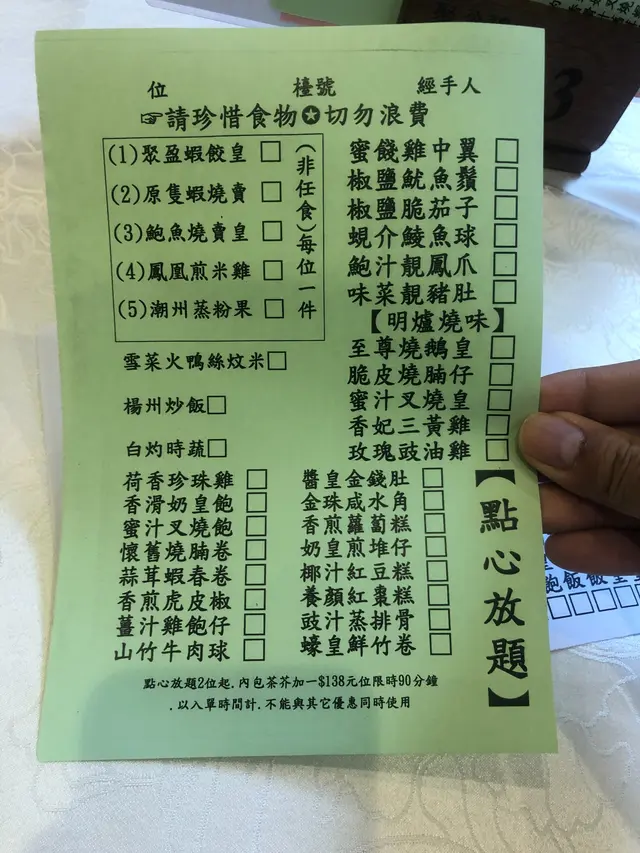 位 檯號 經手人
☞請珍惜食物✪切勿浪費
(1)聚盈蝦餃皇 □
(2)原隻蝦燒賣 □
(3)鮑魚燒賣皇 □
(4)鳳凰煎米雞 □
(5)潮州蒸粉果 □
(非任食)每位一件
雪菜火鴨絲炆米□
楊州炒飯□
白灼時蔬□
蜜餞雞中翼 □
椒鹽魷魚鬚 □
椒鹽脆茄子 □
蜆介鯪魚球 □
鮑汁靚鳳爪 □
味菜靚豬肚 □
【明爐燒味】
至尊燒鵝皇 □
脆皮燒腩仔 □
蜜汁叉燒皇 □
香妃三黃雞 □
玫瑰豉油雞 □
荷香珍珠雞 □
香滑奶皇飽 □
蜜汁叉燒飽 □
懷舊燒腩卷 □
蒜茸蝦春卷 □
香煎虎皮椒 □
薑汁雞飽仔 □
山竹牛肉球 □
醬皇金錢肚 □
金珠咸水角 □
香煎蘿蔔糕 □
奶皇煎堆仔 □
椰汁紅豆糕 □
養顏紅棗糕 □
豉汁蒸排骨 □
蠔皇鮮竹卷 □
【點心放題】
點心放題2位起.內包茶芥加一$138元位限時90分鐘
.以入單時間計.不能與其它優惠同時使用